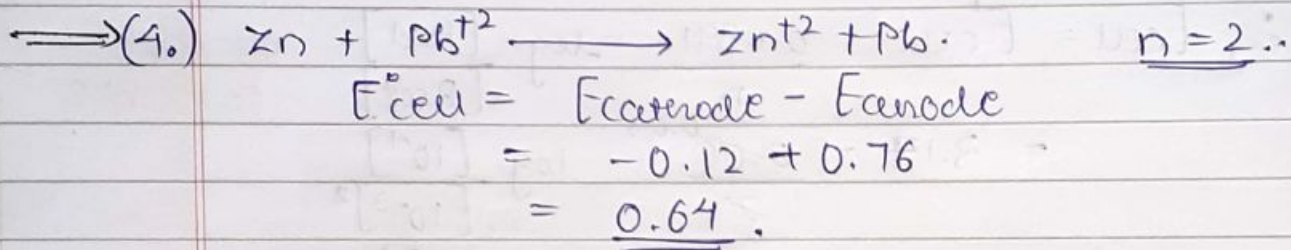 ⟹(4.) Zn + Pb⁺² ⟶ Zn⁺² + Pb. n = 2..
E°cell = Ecathode - Eanode
= -0.12 + 0.76
= 0.64.